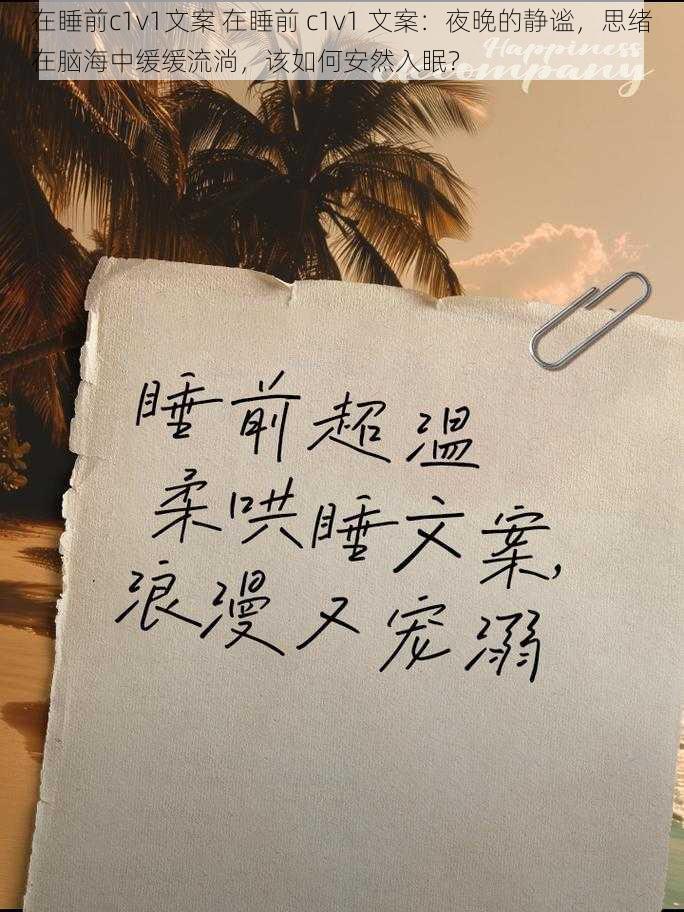 在睡前c1v1文案 在睡前 c1v1 文案：夜晚的静谧，思绪
在脑海中缓缓流淌，该如何安然入眠？
Happiness
company
睡前超温
柔哄睡文案，
浪漫又宠溺